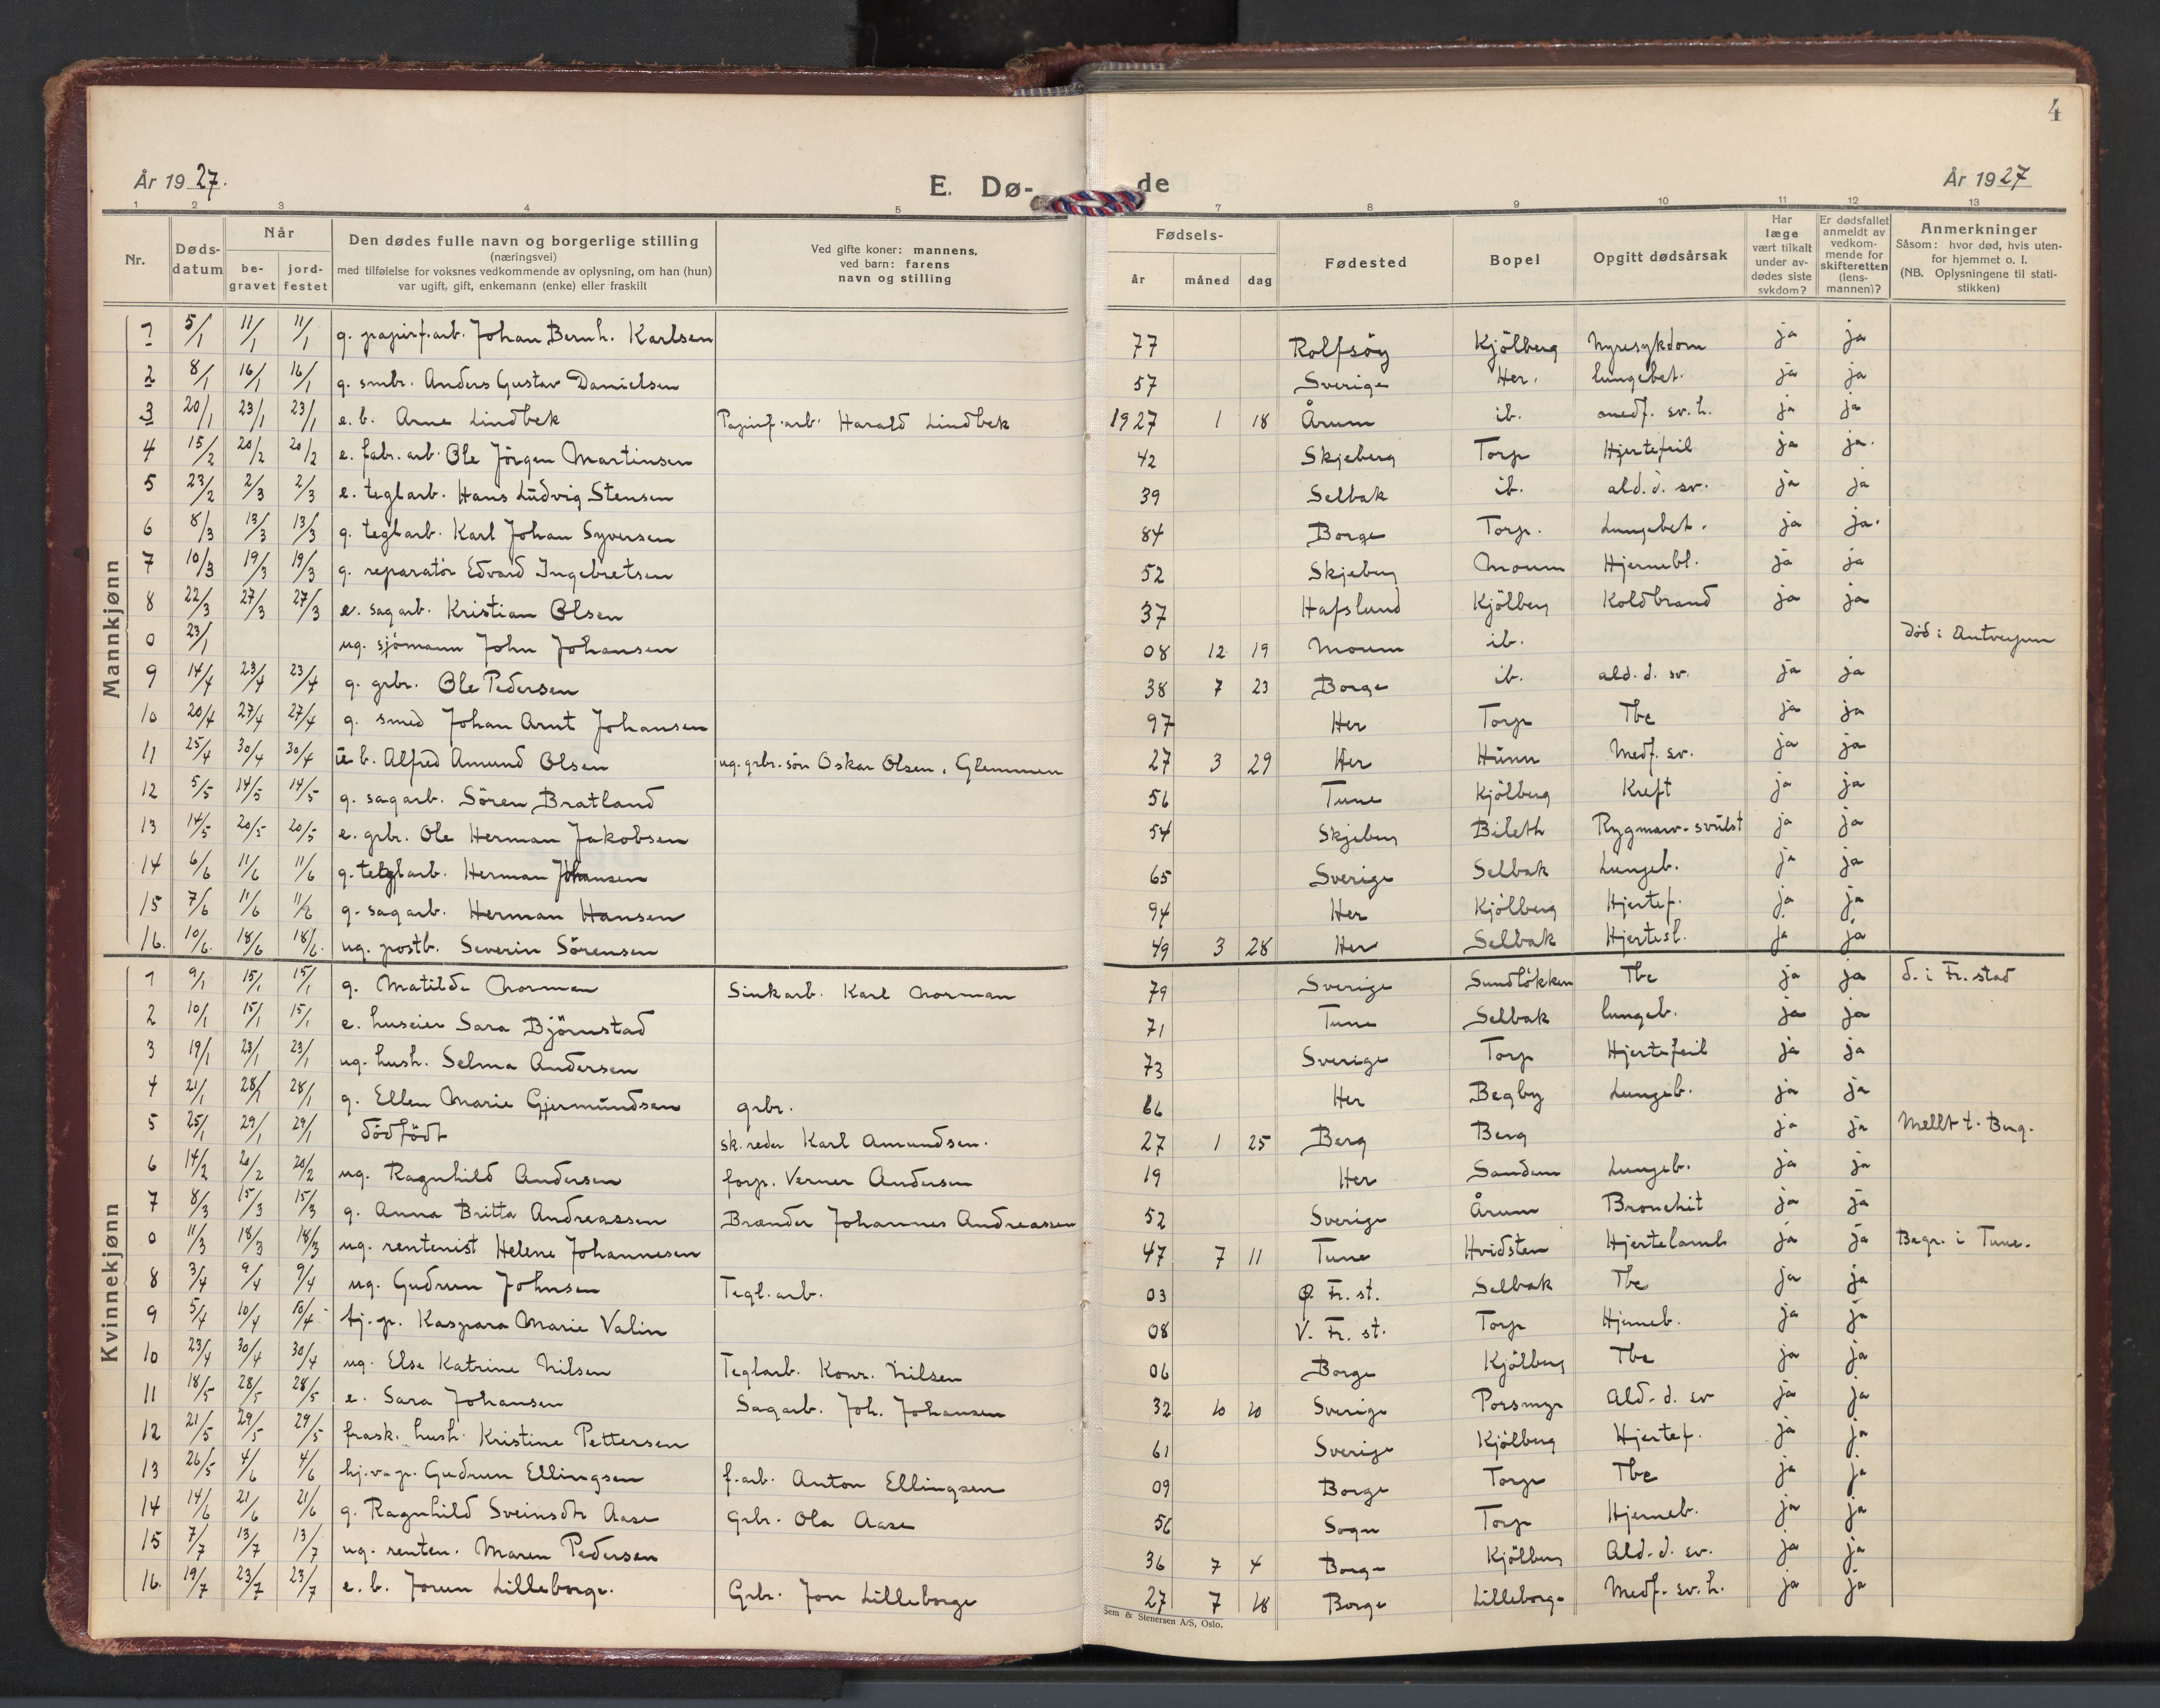 4
År 1927.
E. Dø-
de
År 1927
1 2 3 4 5 7 8 9 10 11 12 13
Nr.
Døds-datum
Når
be-gravet
jord-festet
Den dødes fulle navn og borgerlige stilling
(næringsvei)
med tilføielse for voksnes vedkommende av oplysning, om han (hun)
var ugift, gift, enkemann (enke) eller fraskilt
Ved gifte koner: mannens,
ved barn: farens
navn og stilling
Fødsels-
år måned dag
Fødested
Bopel
Opgitt dødsårsak
Har læge vært tilkalt under av-dødes siste sykdom?
Er dødsfallet anmeldt av vedkom-mende for skifteretten (lens-mannen)?
Anmerkninger
Såsom: hvor død, hvis uten-for hjemmet o. l.
(NB. Oplysningene til stati-stikken)
Mannkjønn
1 5/1 11/1 11/1 g. papirf.arb. Johan Bernh. Karlsen 77 Rolfsöy Kjölberg Nyresykdom ja ja
2 8/1 16/1 16/1 g. smbr. Anders Gustav Danielsen 57 Sverige Her. lungebet. ja ja
3 20/1 23/1 23/1 e. b. Arne Lindbek Papirf.arb. Harald Lindbek 1927 1 18 Årum ib. medf. sv. h. ja ja
4 15/2 20/2 20/2 e. fabr. arb. Ole Jörgen Martinsen 42 Skjeberg Torp Hjertefeil ja ja.
5 23/2 2/3 2/3 e. teglarb. Hans Ludvig Stensen 39 Selbak ib. ald. d. sv. ja ja
6 8/3 13/3 13/3 g. teglarb. Karl Johan Syversen 84 Borge Torp. Lungebet. ja ja.
7 10/3 19/3 19/3 g. reparatör Edvard Ingebretsen 52 Skjeberg Moum Hjernebl. ja ja
8 22/3 27/3 27/3 e. sagarb. Kristian Olsen 37 Hafslund Kjölberg Koldbrand ja ja
0 23/1 ug. sjömann John Johansen 08 12 19 Moum ib. död i Antverpen
9 14/4 23/4 23/4 g. grbr. Ole Pedersen 38 7 23 Borge ib. ald. d. sv. ja ja
10 20/4 27/4 27/4 g. smed Johan Arnt Johansen 97 Her Torp Tbc ja ja
11 25/4 30/4 30/4 u. b. Alfred Amund Olsen ug. grbr. sön Oskar Olsen, Glemmen 27 3 29 Her Hunn Medf. sv. ja ja
12 5/5 14/5 14/5 g. sagarb. Sören Bratland 56 Tune Kjölberg Kreft ja ja
13 14/5 20/5 20/5 e. grbr. Ole Herman Jakobsen 54 Skjeberg Bileth Rygmarv-svulst ja ja
14 6/6 11/6 11/6 g. teglarb. Herman Johansen 65 Sverige Selbak Lungeb. ja ja
15 7/6 11/6 11/6 g. sagarb. Herman Hansen 94 Her Kjölberg Hjertef. ja ja
16. 10/6. 18/6 18/6. ug. postb. Severin Sörensen 49 3 28 Her Selbak Hjertesl. ja ja
Kvinnekjønn
1 9/1 15/1 15/1 g. Matilde Norman Sinkarb. Karl Norman 79 Sverige Sundlökken Tbc ja ja d. i Fr. stad
2 10/1 15/1 15/1 e. huseier Sara Björnstad 71 Tune Selbak lungeb. ja ja
3 19/1 23/1 23/1 ug. hush. Selma Andersen 73 Sverige Torp Hjertefeil ja ja
4 21/1 28/1 28/1 g. Ellen Marie Gjermundsen grbr. 66 Her Begby Lungeb. ja ja
5 25/1 29/1 29/1 dödfödt sk.reder Karl Amundsen. 27 1 25 Berg Berg ja ja Mellt t. Berg.
6 14/2 20/2 20/2 ug. Ragnhild Andersen forp. Verner Andersen 19 Her Sandem Lungeb. ja ja
7 8/3 15/3 15/3 g. Anna Britta Andreassen Brænder Johannes Andreassen 52 Sverige Årum Bronchit ja ja
0 11/3 18/3 18/3 ug. rentenist Helene Johannesen 47 7 11 Tune Hvidsten Hjertelamh ja ja Begr. i Tune.
8 3/4 9/4 9/4 ug. Gudrun Johnsen Tegl.arb. 03 Ø. Fr. st. Selbak Tbc ja ja
9 5/4 10/4 10/4 tj. p. Kaspara Marie Valin 08 V. Fr. st. Torp Hjerneb. ja ja
10 23/4 30/4 30/4 ug. Else Katrine Nilsen Teglarb. Konr. Nilsen 06 Borge Kjölberg Tbc ja ja
11 18/5 28/5 28/5 e. Sara Johansen Sagarb. Joh. Johansen 32 10 10 Sverige Porsmyr Ald. d. sv ja ja
12 21/5 29/5 29/5 frask. hush. Kristine Pettersen 61 Sverige Kjölberg Hjertef. ja ja
13 26/5 4/6 4/6 hj.v.p. Gudrun Ellingsen f.arb. Anton Ellingsen 09 Borge Torp Tbc ja ja
14 14/6 21/6 21/6 g. Ragnhild Sveinsdtr Aase Grbr. Ola Aase 56 Sogn Torp Hjerneb. ja ja
15 7/7 13/7 13/7 ug. renten. Maren Pedersen 36 7 4 Borge Kjölberg Ald. d. sv. ja ja
16. 19/7 23/7 23/7 e. b. Jorun Lilleborge. Grbr. Jon Lilleborge 27 7 18 Borge Lilleborge Medf. sv. h. ja ja
Sem & Stenersen A/S, Oslo.